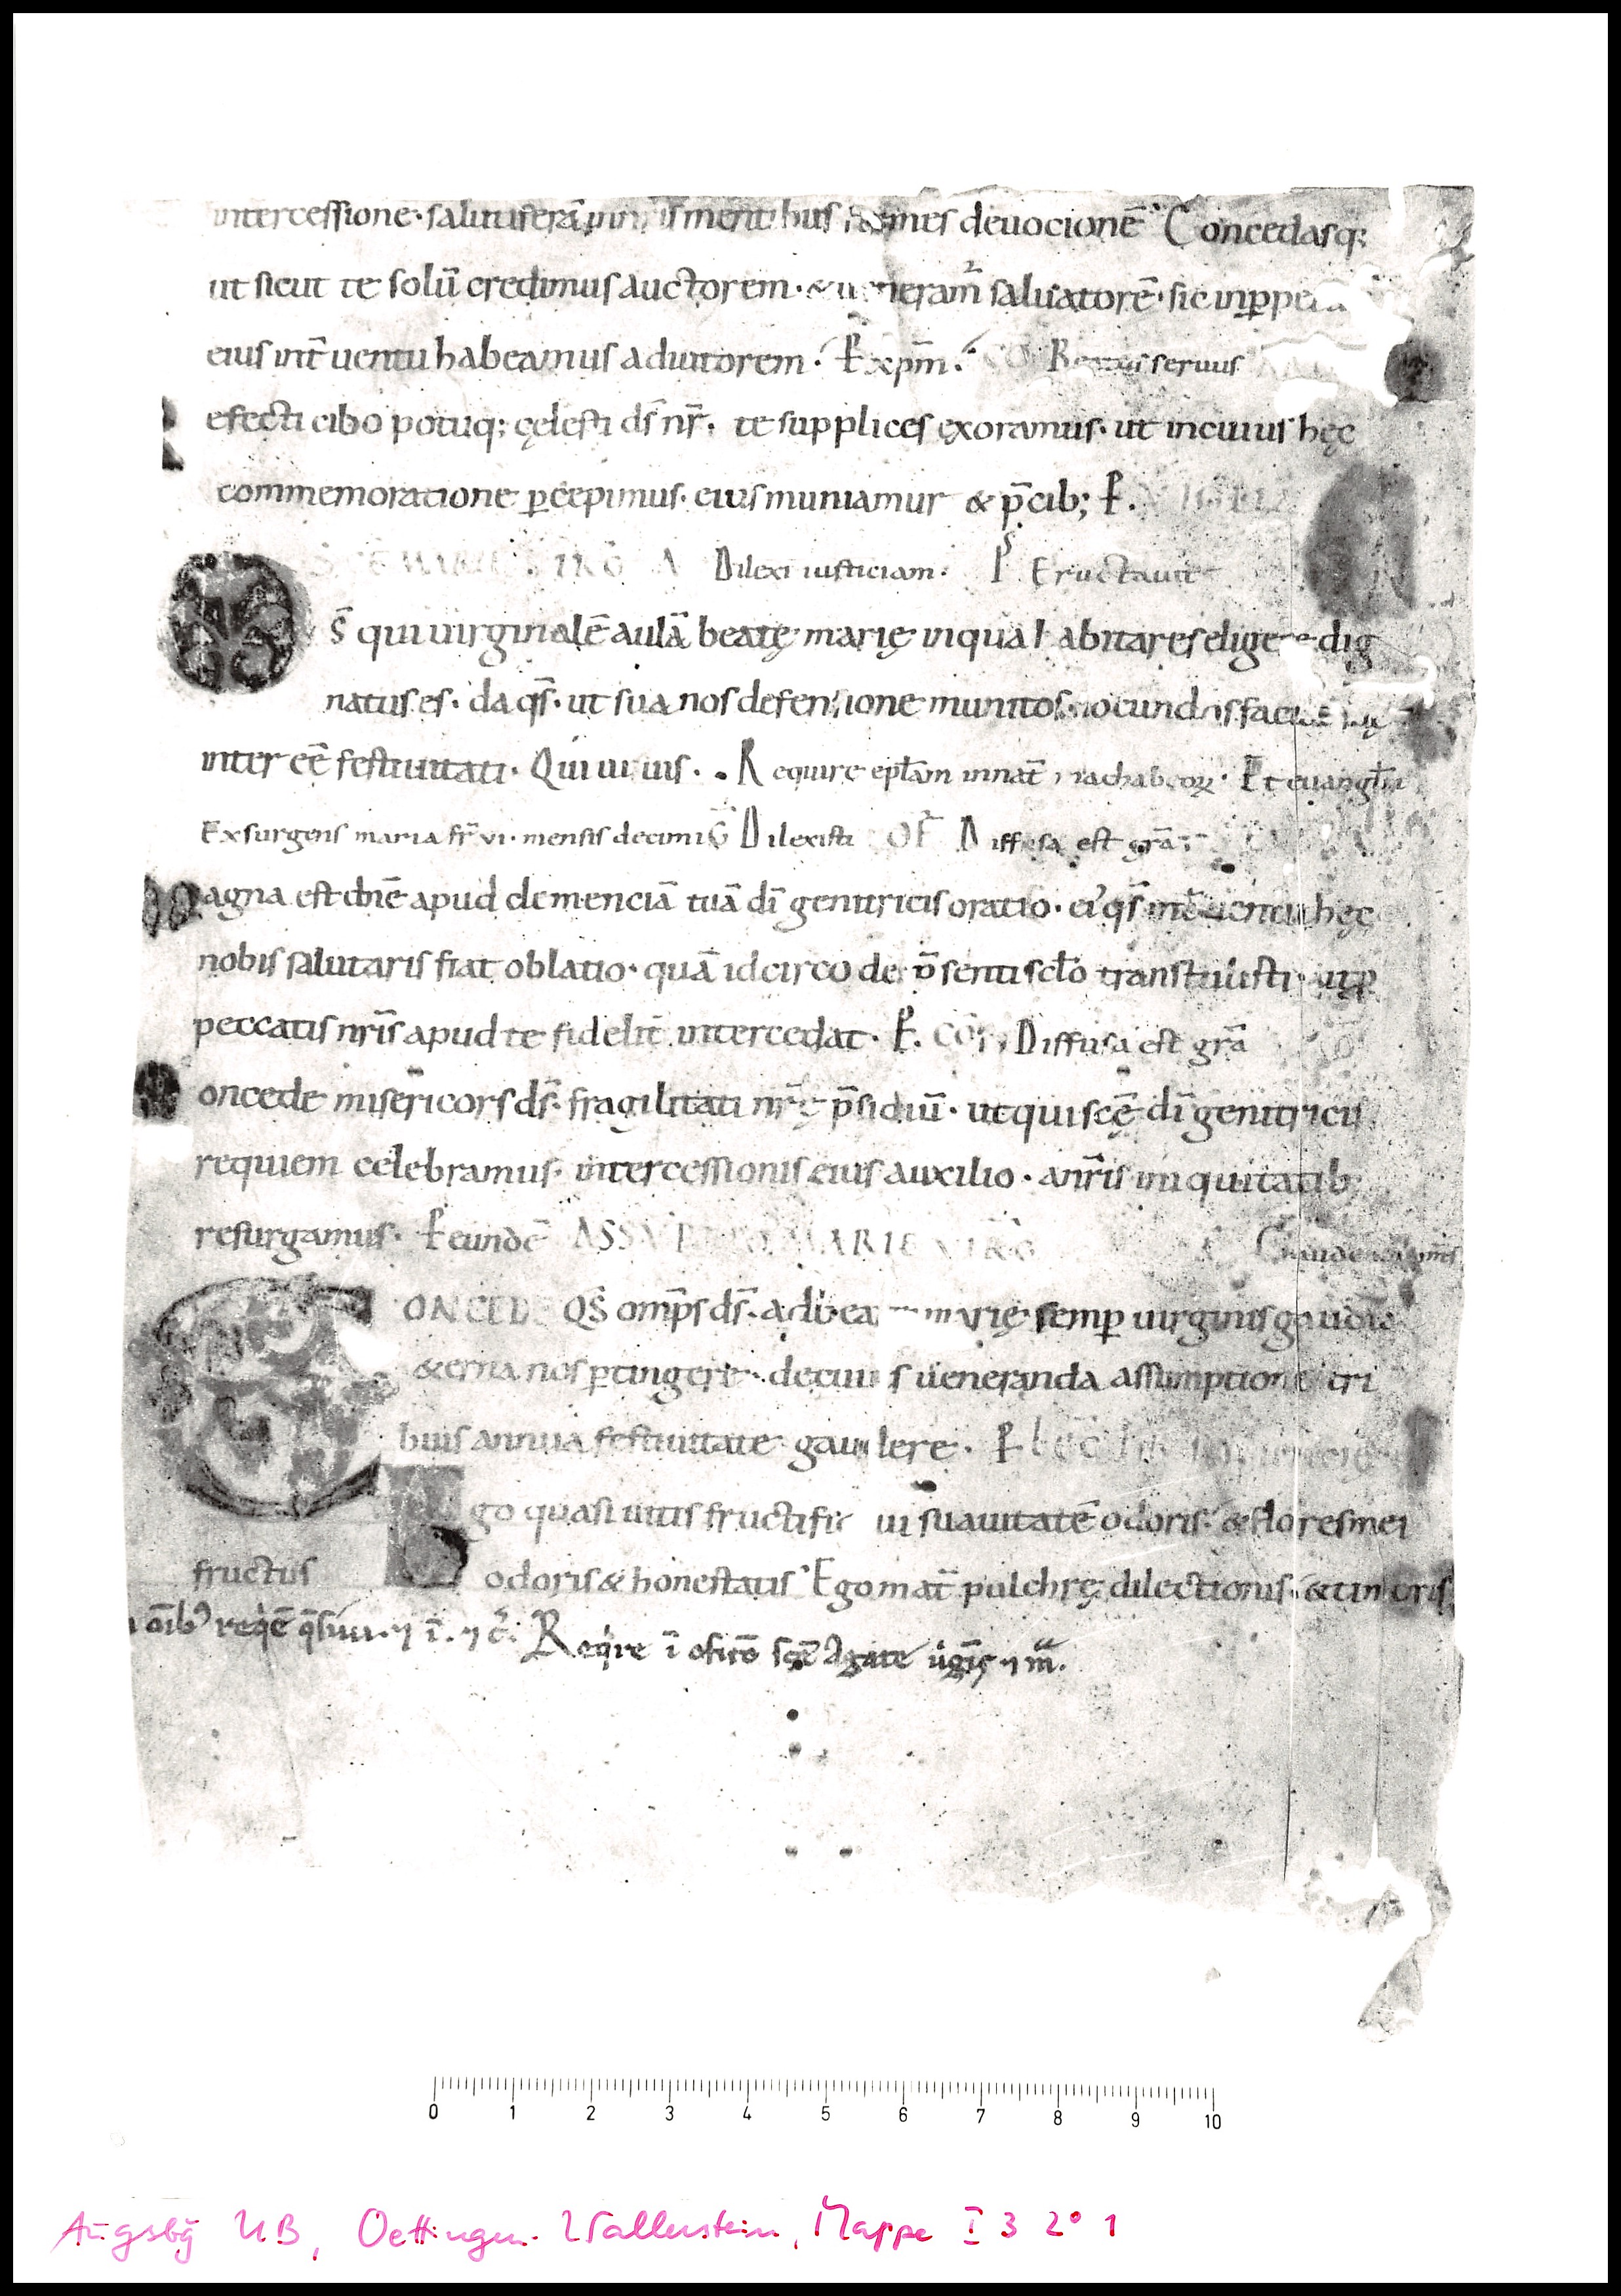 intercessione· salutiferā mentibus devocionē· Concedasq;
ut sicut te solū credimus auctorem· & veneram̄ salvatorē· sic in
eius int̄ ventu habeamus adiutorem· P xp̄m· CO Beatus servus
efecti cibo potuq; cęlesti ds̄ nr̄· te supplices exoramus· ut in cuius hęc
commemoratione p̲cepimus· eius muniamur & p̄cib; P.
Dilexi iusticiam· Ps Eructavit
s̄ qui virginalē aulā beatę marię in qua habitares eligere dig
natus es· da qs̄· ut sua nos defensione munitos· iocundos faci
inter eē festivitati· Qui vivis· Require ep̄lam in nat̄ machabeoꝝ· Et evangl̄m
Exsurgens maria fr̄ vi· mensis decimi G Dilexisti OF Diffusa est grā
agna est dn̄e apud clemenciā tuā dī genitricis oratio· ei' qs̄ int̄ventu hęc
nobis salutaris fiat oblatio· quā idcirco de p̄senti sclo transtulisti· ut p̲
peccatis nr̄is apud te fidelit̄ intercedat· P. CO Diffusa est grā
oncede misericors ds̄· fragilitati nr̄ę p̄sidiū· ut qui scę̄ dī genitricis
requiem celebramus· intercessionis eius auxilio· a nr̄is iniquitatib
resurgamus· P eundē ASSVPTIO MARIE VIRG Gaudeamus
CONCEDE QS̄ omp̄s ds̄· ad bea marię semp̲ virginis gaudia
&erna nos p̲tingere· de cuius veneranda assumptione tri
buis annua festivitate gaudere· P Lec̄ lib̄ sapientię
Ego quasi vitis fructificavi suavitatē odoris· & flores mei
fructus odoris & honestatis· Ego mat̄ pulchrę dilectionis· & timoris
oīb' reqiē qsivi· ⁊ ī· ⁊ c̄· Reqire ī oficio scē Agate v̇gīs ⁊ m̄·
0 1 2 3 4 5 6 7 8 9 10
Augsbg UB, Oettingen-Wallerstein, Mappe I 3 2° 1